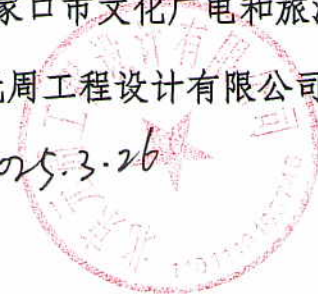 家口市文化广电和旅游
周工程设计有限公司
2025.3.26